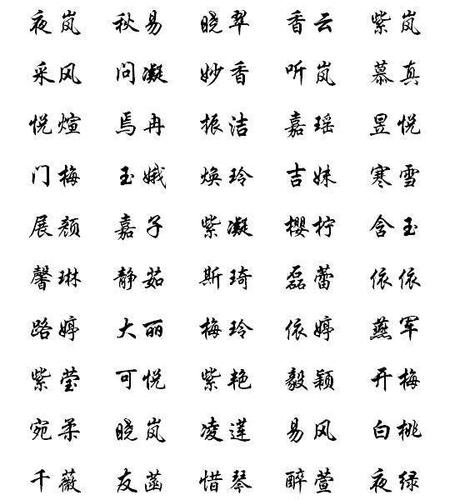 夜岚 秋易 晓翠 香云 紫岚
采风 问凝 妙香 听岚 慕真
悦煊 焉冉 振洁 嘉瑶 昱悦
门梅 玉娥 焕玲 吉妹 寒雪
展颜 嘉子 紫凝 樱柠 含玉
馨琳 静茹 斯琦 磊蕾 依依
路婷 大丽 梅玲 依婷 燕军
紫莹 可悦 紫艳 毅颖 开梅
宛柔 晓岚 凌莲 易风 白桃
千薇 友菡 惜琴 醉萱 夜绿